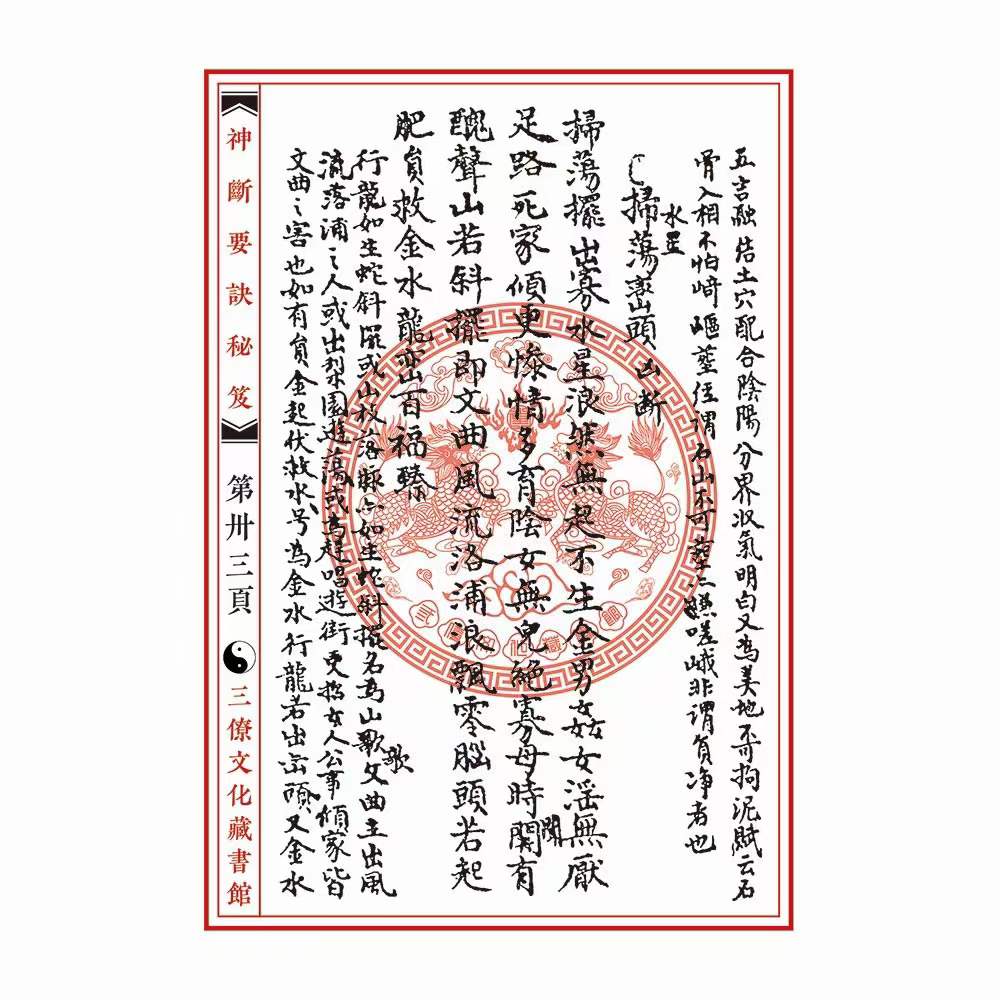 五吉融结土穴配合陰陽分界収氣明白又為美地不可拘泥賦云石
骨入相不怕﨑嶇塟径謂石山不可塟亦嵯峨非謂負净者也
水星
掃蕩巒頭凶断
掃蕩擺出寡水星浪無無起不生金男女姦女淫無厭
足路死家傾更慘情多育陰女無兒絕寡母時聞有
醜聲山若斜擺即文曲風流洛浦浪飄零腦頭若起
肥貟救金水龍巒百福臻
行龍如生蛇斜擺或山枝落脉亦如生蛇斜擺名為山歌文曲主出風
流落浦之人或出梨園遊蕩或為趕唱遊街更招女人公事傾家皆
文曲之害也如有貟金起伏救水号為金水行龍若出巒頭又金水
神斷要訣秘笈
第卅三頁
三僚文化藏書館